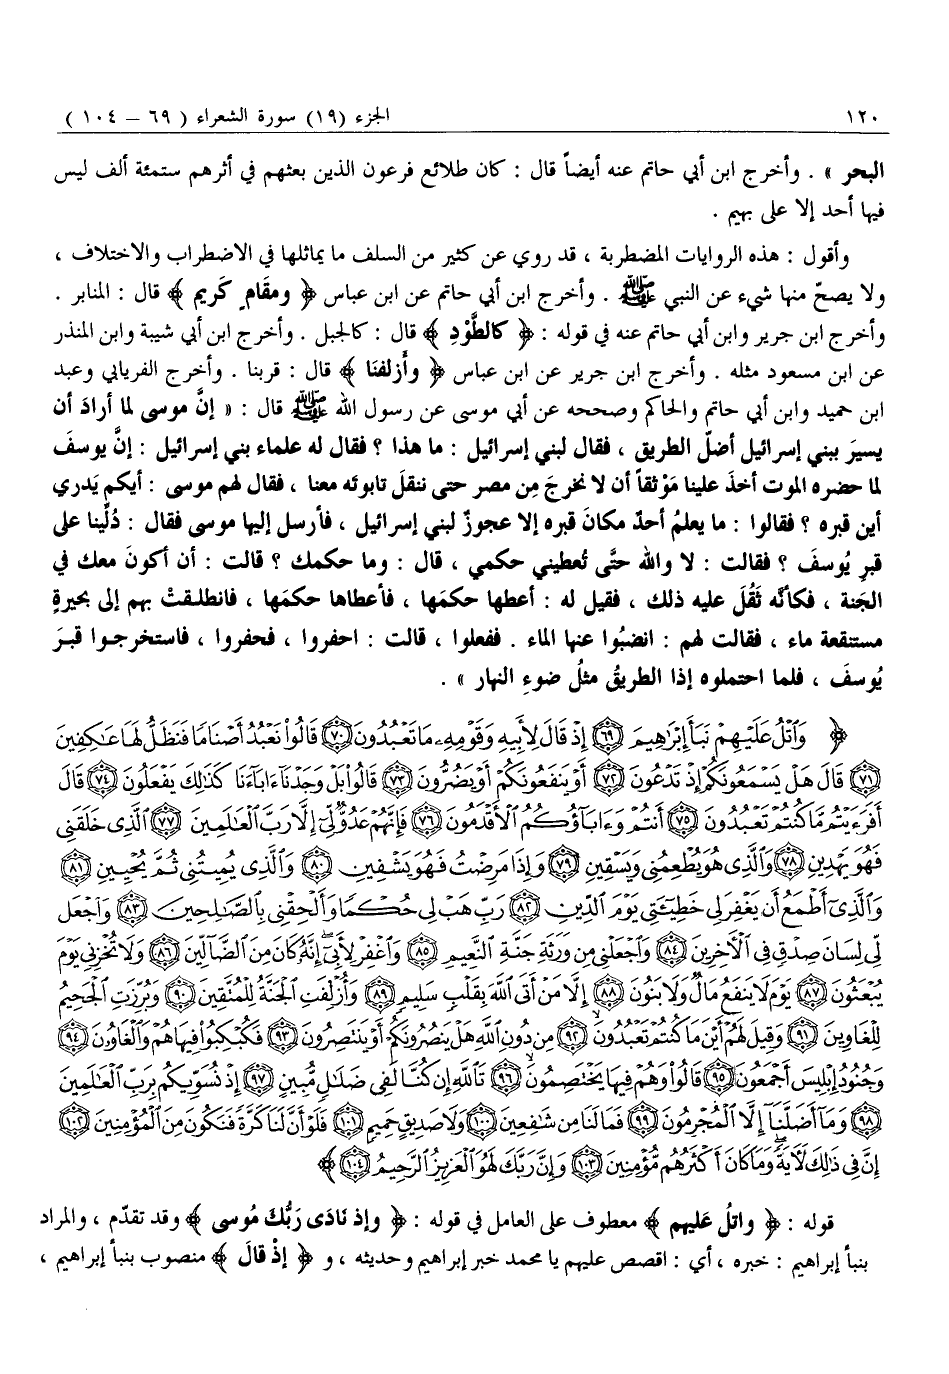 ١٢٠ الجزء (١٩) سورة الشعراء ( ٦٩ – ١٠٤ )
البحر » . وأخرج ابن أبي حاتم عنه أيضاً قال : كان طلائع فرعون الذين بعثهم في أثرهم ستمئة ألف ليس
فيها أحد إلا على بهيم .
وأقول : هذه الروايات المضطربة ، قد روي عن كثير من السلف ما يماثلها في الاضطراب والاختلاف ،
ولا يصحّ منها شيء عن النبي ﷺ . وأخرج ابن أبي حاتم عن ابن عباس ﴿ ومقَامٍ كَريم ﴾ قال : المنابر .
وأخرج ابن جرير وابن أبي حاتم عنه في قوله : ﴿ كالطَّوْدِ ﴾ قال : كالجبل . وأخرج ابن أبي شيبة وابن المنذر
عن ابن مسعود مثله . وأخرج ابن جرير عن ابن عباس ﴿ وأَزلفنَا ﴾ قال : قربنا . وأخرج الفريابي وعبد
ابن حميد وابن أبي حاتم والحاكم وصححه عن أبي موسى عن رسول الله ﷺ قال : « إنَّ موسى لما أرادَ أن
يسيرَ ببني إسرائيل أضلّ الطريق ، فقال لبني إسرائيل : ما هذا ؟ فقال له علماء بني إسرائيل : إنَّ يوسفَ
لما حضره الموت أخذَ علينا مَوْثقاً أن لا نخرجَ مِن مصر حتى ننقلَ تابوته معنا ، فقال لهم موسى : أيكم يَدري
أين قبره ؟ فقالوا : ما يعلمُ أحدٌ مكانَ قبره إلا عجوزٌ لبني إسرائيل ، فأرسل إليها موسى فقال : دُلِّينا على
قبرِ يُوسفَ ؟ فقالت : لا والله حتَّى تُعطيني حكمي ، قال : وما حكمك ؟ قالت : أن أكونَ معك في
الجَنة ، فكأنَّه ثَقُلَ عليه ذلك ، فقيل له : أعطها حكمَها ، فأعطاها حكمَها ، فانطلـقتْ بهم إلى بحيرةٍ
مستنقعة ماء ، فقالت لهم : انضبُوا عنها الماء . ففعلوا ، قالت : احفروا ، فحفروا ، فاستخرجـوا قبـرَ
يُوسفَ ، فلما احتملوه إذا الطريقُ مثلُ ضوءِ النهار » .
﴿ وَٱتۡلُ عَلَيۡهِمۡ نَبَأَ إِبۡرَٰهِيمَ ٦٩ إِذۡ قَالَ لِأَبِيهِ وَقَوۡمِهِۦ مَا تَعۡبُدُونَ ٧٠ قَالُواْ نَعۡبُدُ أَصۡنَامٗا فَنَظَلُّ لَهَا عَٰكِفِينَ
٧١ قَالَ هَلۡ يَسۡمَعُونَكُمۡ إِذۡ تَدۡعُونَ ٧٢ أَوۡ يَنفَعُونَكُمۡ أَوۡ يَضُرُّونَ ٧٣ قَالُواْ بَلۡ وَجَدۡنَآ ءَابَآءَنَا كَذَٰلِكَ يَفۡعَلُونَ ٧٤ قَالَ
أَفَرَءَيۡتُم مَّا كُنتُمۡ تَعۡبُدُونَ ٧٥ أَنتُمۡ وَءَابَآؤُكُمُ ٱلۡأَقۡدَمُونَ ٧٦ فَإِنَّهُمۡ عَدُوّٞ لِّيٓ إِلَّا رَبَّ ٱلۡعَٰلَمِينَ ٧٧ ٱلَّذِي خَلَقَنِي
فَهُوَ يَهۡدِينِ ٧٨ وَٱلَّذِي هُوَ يُطۡعِمُنِي وَيَسۡقِينِ ٧٩ وَإِذَا مَرِضۡتُ فَهُوَ يَشۡفِينِ ٨٠ وَٱلَّذِي يُمِيتُنِي ثُمَّ يُحۡيِينِ ٨١
وَٱلَّذِيٓ أَطۡمَعُ أَن يَغۡفِرَ لِي خَطِيٓـَٔتِي يَوۡمَ ٱلدِّينِ ٨٢ رَبِّ هَبۡ لِي حُكۡمٗا وَأَلۡحِقۡنِي بِٱلصَّٰلِحِينَ ٨٣ وَٱجۡعَل
لِّي لِسَانَ صِدۡقٖ فِي ٱلۡأٓخِرِينَ ٨٤ وَٱجۡعَلۡنِي مِن وَرَثَةِ جَنَّةِ ٱلنَّعِيمِ ٨٥ وَٱغۡفِرۡ لِأَبِيٓ إِنَّهُۥ كَانَ مِنَ ٱلضَّآلِّينَ ٨٦ وَلَا تُخۡزِنِي يَوۡمَ
يُبۡعَثُونَ ٨٧ يَوۡمَ لَا يَنفَعُ مَالٞ وَلَا بَنُونَ ٨٨ إِلَّا مَنۡ أَتَى ٱللَّهَ بِقَلۡبٖ سَلِيمٖ ٨٩ وَأُزۡلِفَتِ ٱلۡجَنَّةُ لِلۡمُتَّقِينَ ٩٠ وَبُرِّزَتِ ٱلۡجَحِيمُ
لِلۡغَاوِينَ ٩١ وَقِيلَ لَهُمۡ أَيۡنَ مَا كُنتُمۡ تَعۡبُدُونَ ٩٢ مِن دُونِ ٱللَّهِ هَلۡ يَنصُرُونَكُمۡ أَوۡ يَنتَصِرُونَ ٩٣ فَكُبۡكِبُواْ فِيهَا هُمۡ وَٱلۡغَاوُۥنَ ٩٤
وَجُنُودُ إِبۡلِيسَ أَجۡمَعُونَ ٩٥ قَالُواْ وَهُمۡ فِيهَا يَخۡتَصِمُونَ ٩٦ تَٱللَّهِ إِن كُنَّا لَفِي ضَلَٰلٖ مُّبِينٍ ٩٧ إِذۡ نُسَوِّيكُم بِرَبِّ ٱلۡعَٰلَمِينَ
٩٨ وَمَآ أَضَلَّنَآ إِلَّا ٱلۡمُجۡرِمُونَ ٩٩ فَمَا لَنَا مِن شَٰفِعِينَ ١٠٠ وَلَا صَدِيقٍ حَمِيمٖ ١٠١ فَلَوۡ أَنَّ لَنَا كَرَّةٗ فَنَكُونَ مِنَ ٱلۡمُؤۡمِنِينَ ١٠٢
إِنَّ فِي ذَٰلِكَ لَأٓيَةٗۖ وَمَا كَانَ أَكۡثَرُهُم مُّؤۡمِنِينَ ١٠٣ وَإِنَّ رَبَّكَ لَهُوَ ٱلۡعَزِيزُ ٱلرَّحِيمُ ١٠٤ ﴾
قوله : ﴿ واتلُ عَليهم ﴾ معطوف على العامل في قوله : ﴿ وإذ نَادَى رَبُّكَ مُوسى ﴾ وقد تقدّم ، والمراد
بنبأ إبراهيم : خبره ، أي : اقصص عليهم يا محمد خبر إبراهيم وحديثه ، و ﴿ إذْ قالَ ﴾ منصوب بنبأ إبراهيم ،